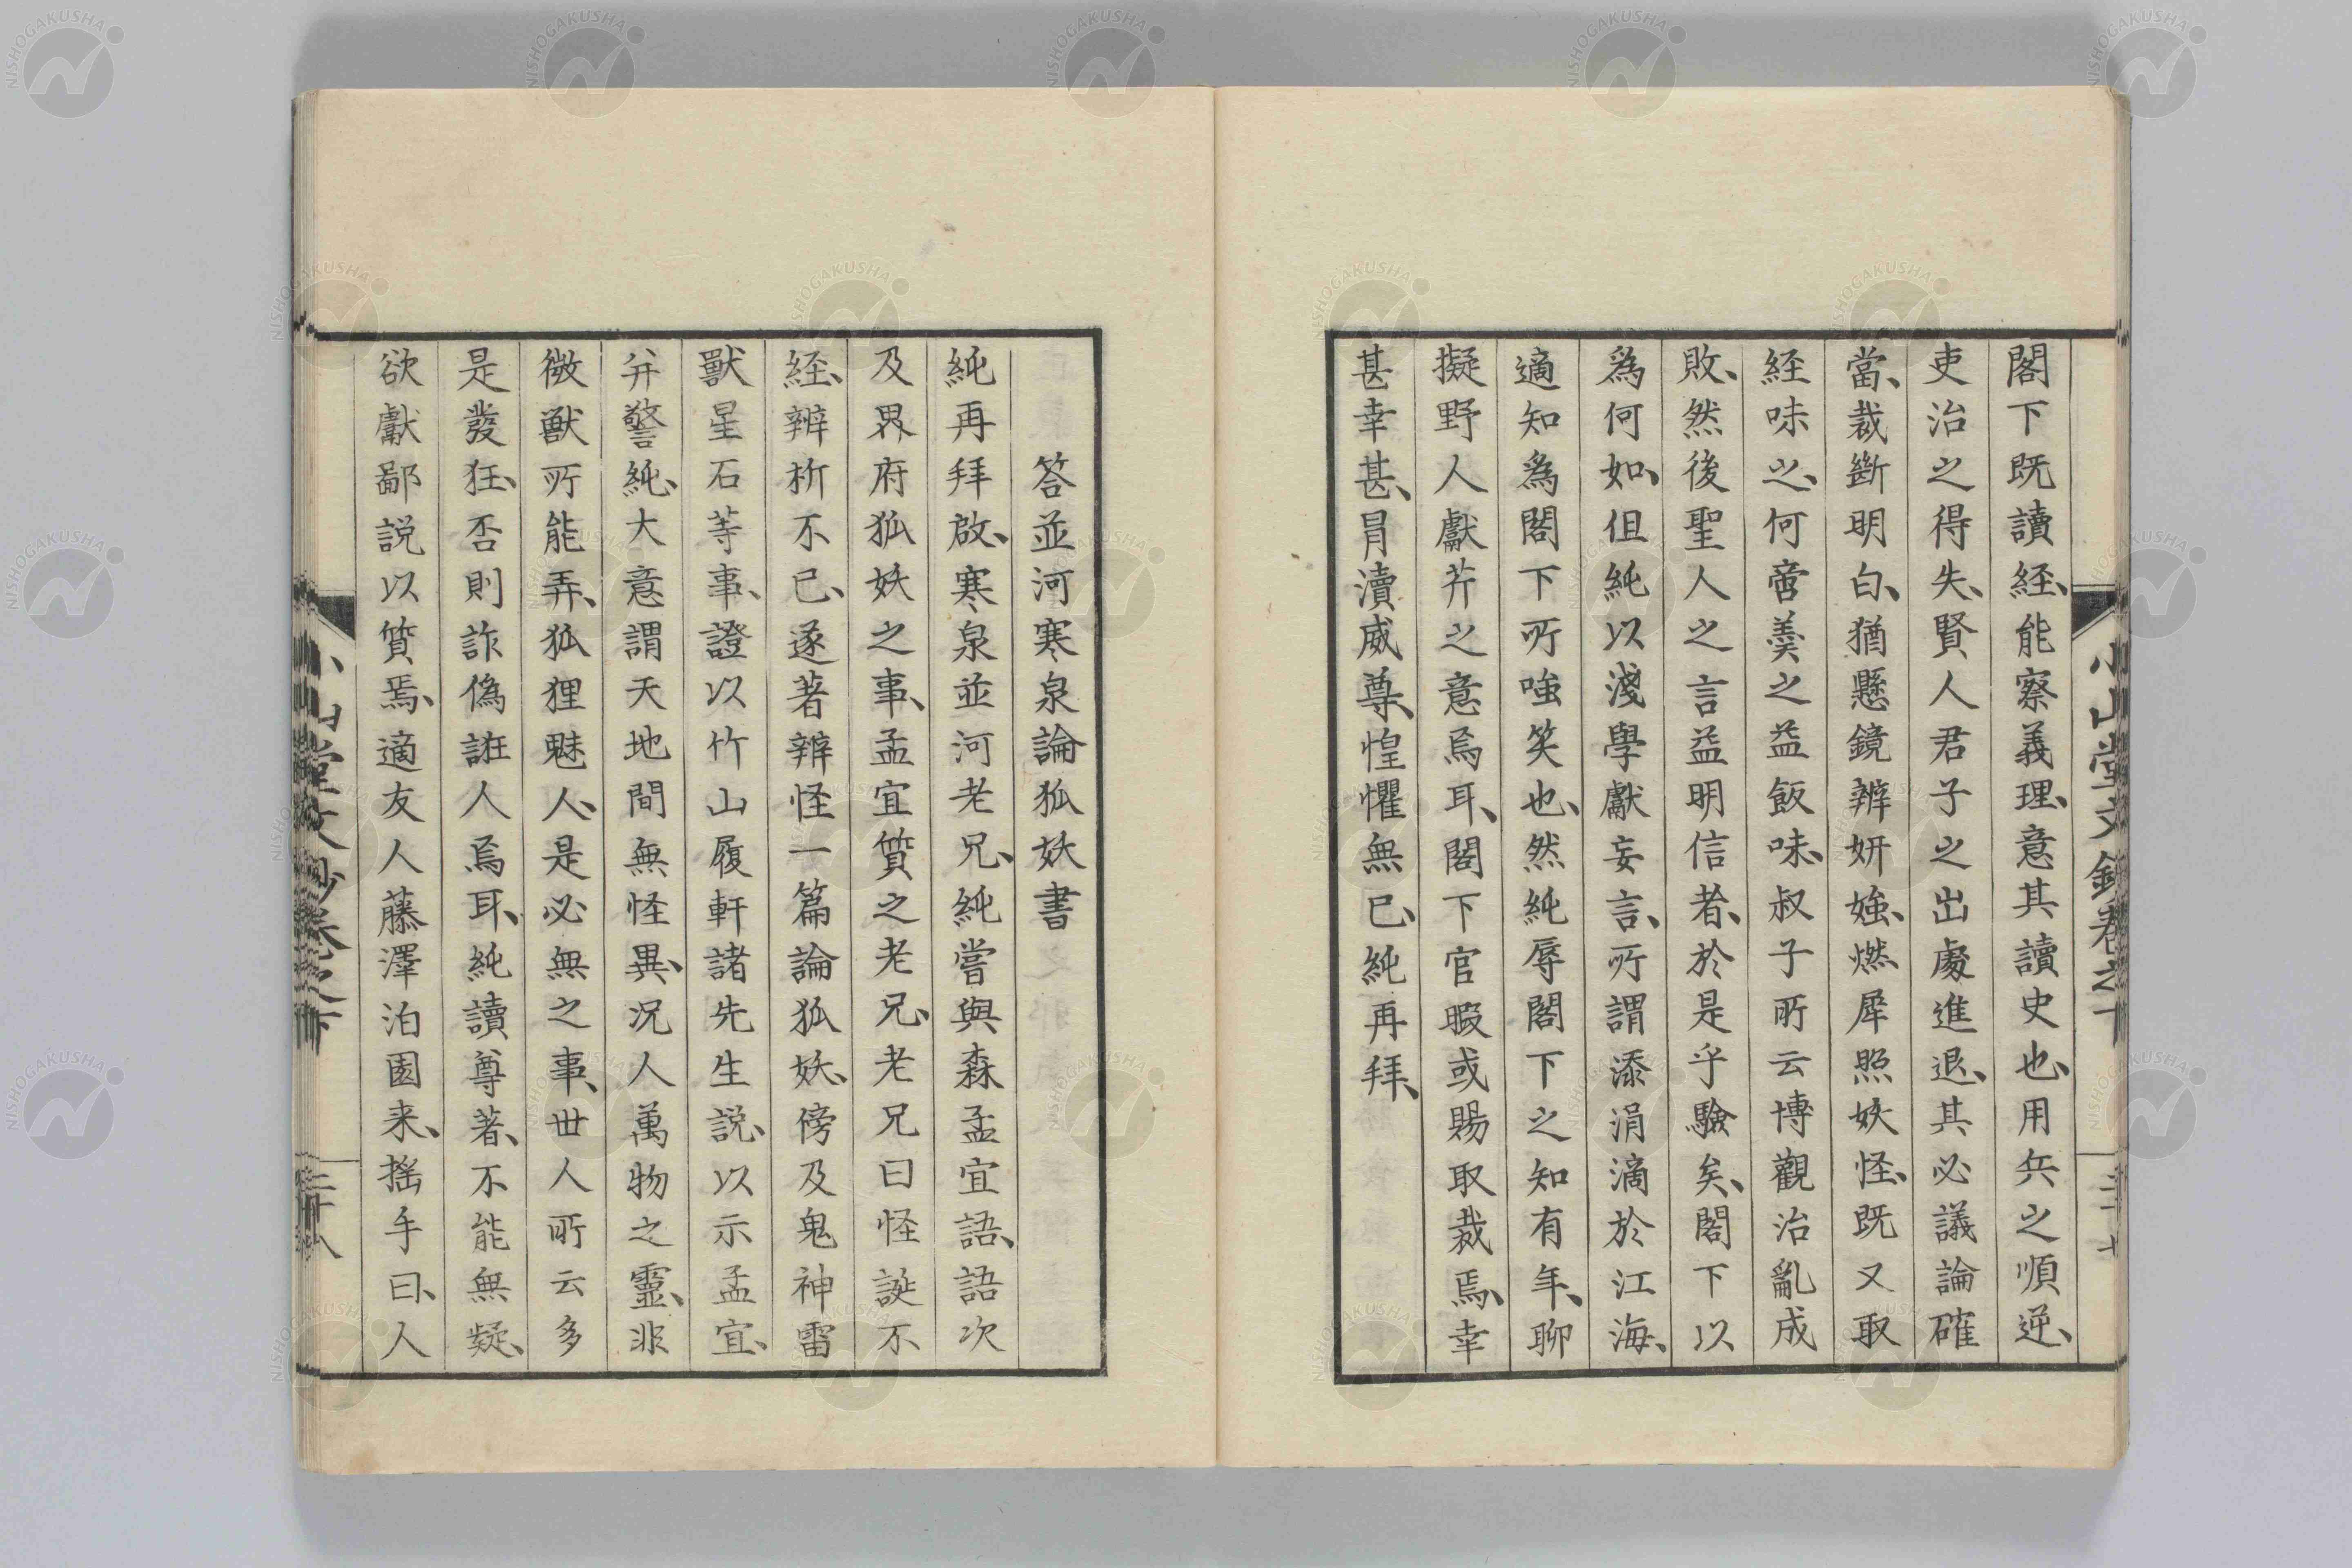 閣下既讀経、能察義理、意其讀史也、用兵之順逆、
吏治之得失、賢人君子之出處進退、其必議論確
當、裁斷明白、猶懸鏡辨妍媸、燃犀照妖怪、既又取
経味之、何啻羹之益飯味、叔子所云博觀治亂成
敗、然後聖人之言益明信者、於是乎驗矣、閣下以
為何如、但純以淺學獻妄言、所謂添涓滴於江海、
適知為閣下所嗤笑也、然純辱閣下之知有年、聊
擬野人獻芹之意焉耳、閣下官暇或賜取裁焉、幸
甚幸甚、冐瀆威尊、惶懼無已、純再拜、
小山堂文鈔卷之下
二十七
答並河寒泉論狐妖書
純再拜啟、寒泉並河老兄、純嘗與森孟宜語、語次
及界府狐妖之事、孟宜質之老兄、老兄曰怪誕不
経、辨析不已、遂著辨怪一篇論狐妖、傍及鬼神雷
獸星石等事、證以竹山履軒諸先生説、以示孟宜、
并警純、大意謂天地間無怪異、況人萬物之靈、非
微獣所能弄、狐狸魅人、是必無之事、世人所云多
是發狂、否則詐偽誑人焉耳、純讀尊著、不能無疑、
欲獻鄙説以質焉、適友人藤澤泊園来、揺手曰、人
小山堂文鈔卷之下
二十八
NISHOGAKUSHA